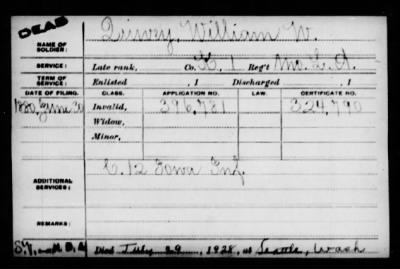 DEAD
Quivey, William W.
NAME OF SOLDIER:
SERVICE: Late rank, Co. K, 1 Reg't Mo. L. A.
TERM OF SERVICE: Enlisted , 1 Discharged , 1
DATE OF FILING. CLASS. APPLICATION NO. LAW. CERTIFICATE NO.
1880, June 30 Invalid, 396,781 324,790
Widow,
Minor,
C. 12 Iowa Inf.
ADDITIONAL SERVICES:
REMARKS:
Died July 29, 1928, at Seattle, Wash